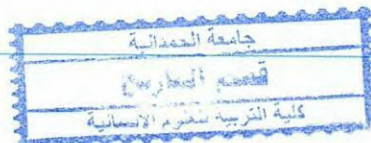 جامعة الحمدانية
قسم
كلية التربية للعلوم الانسانية